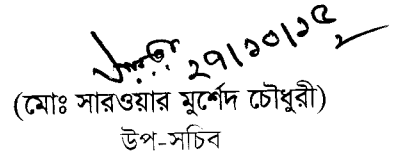 ২৭/১০/১৫
(মোঃ সারওয়ার মুর্শেদ চৌধুরী)
উপ-সচিব